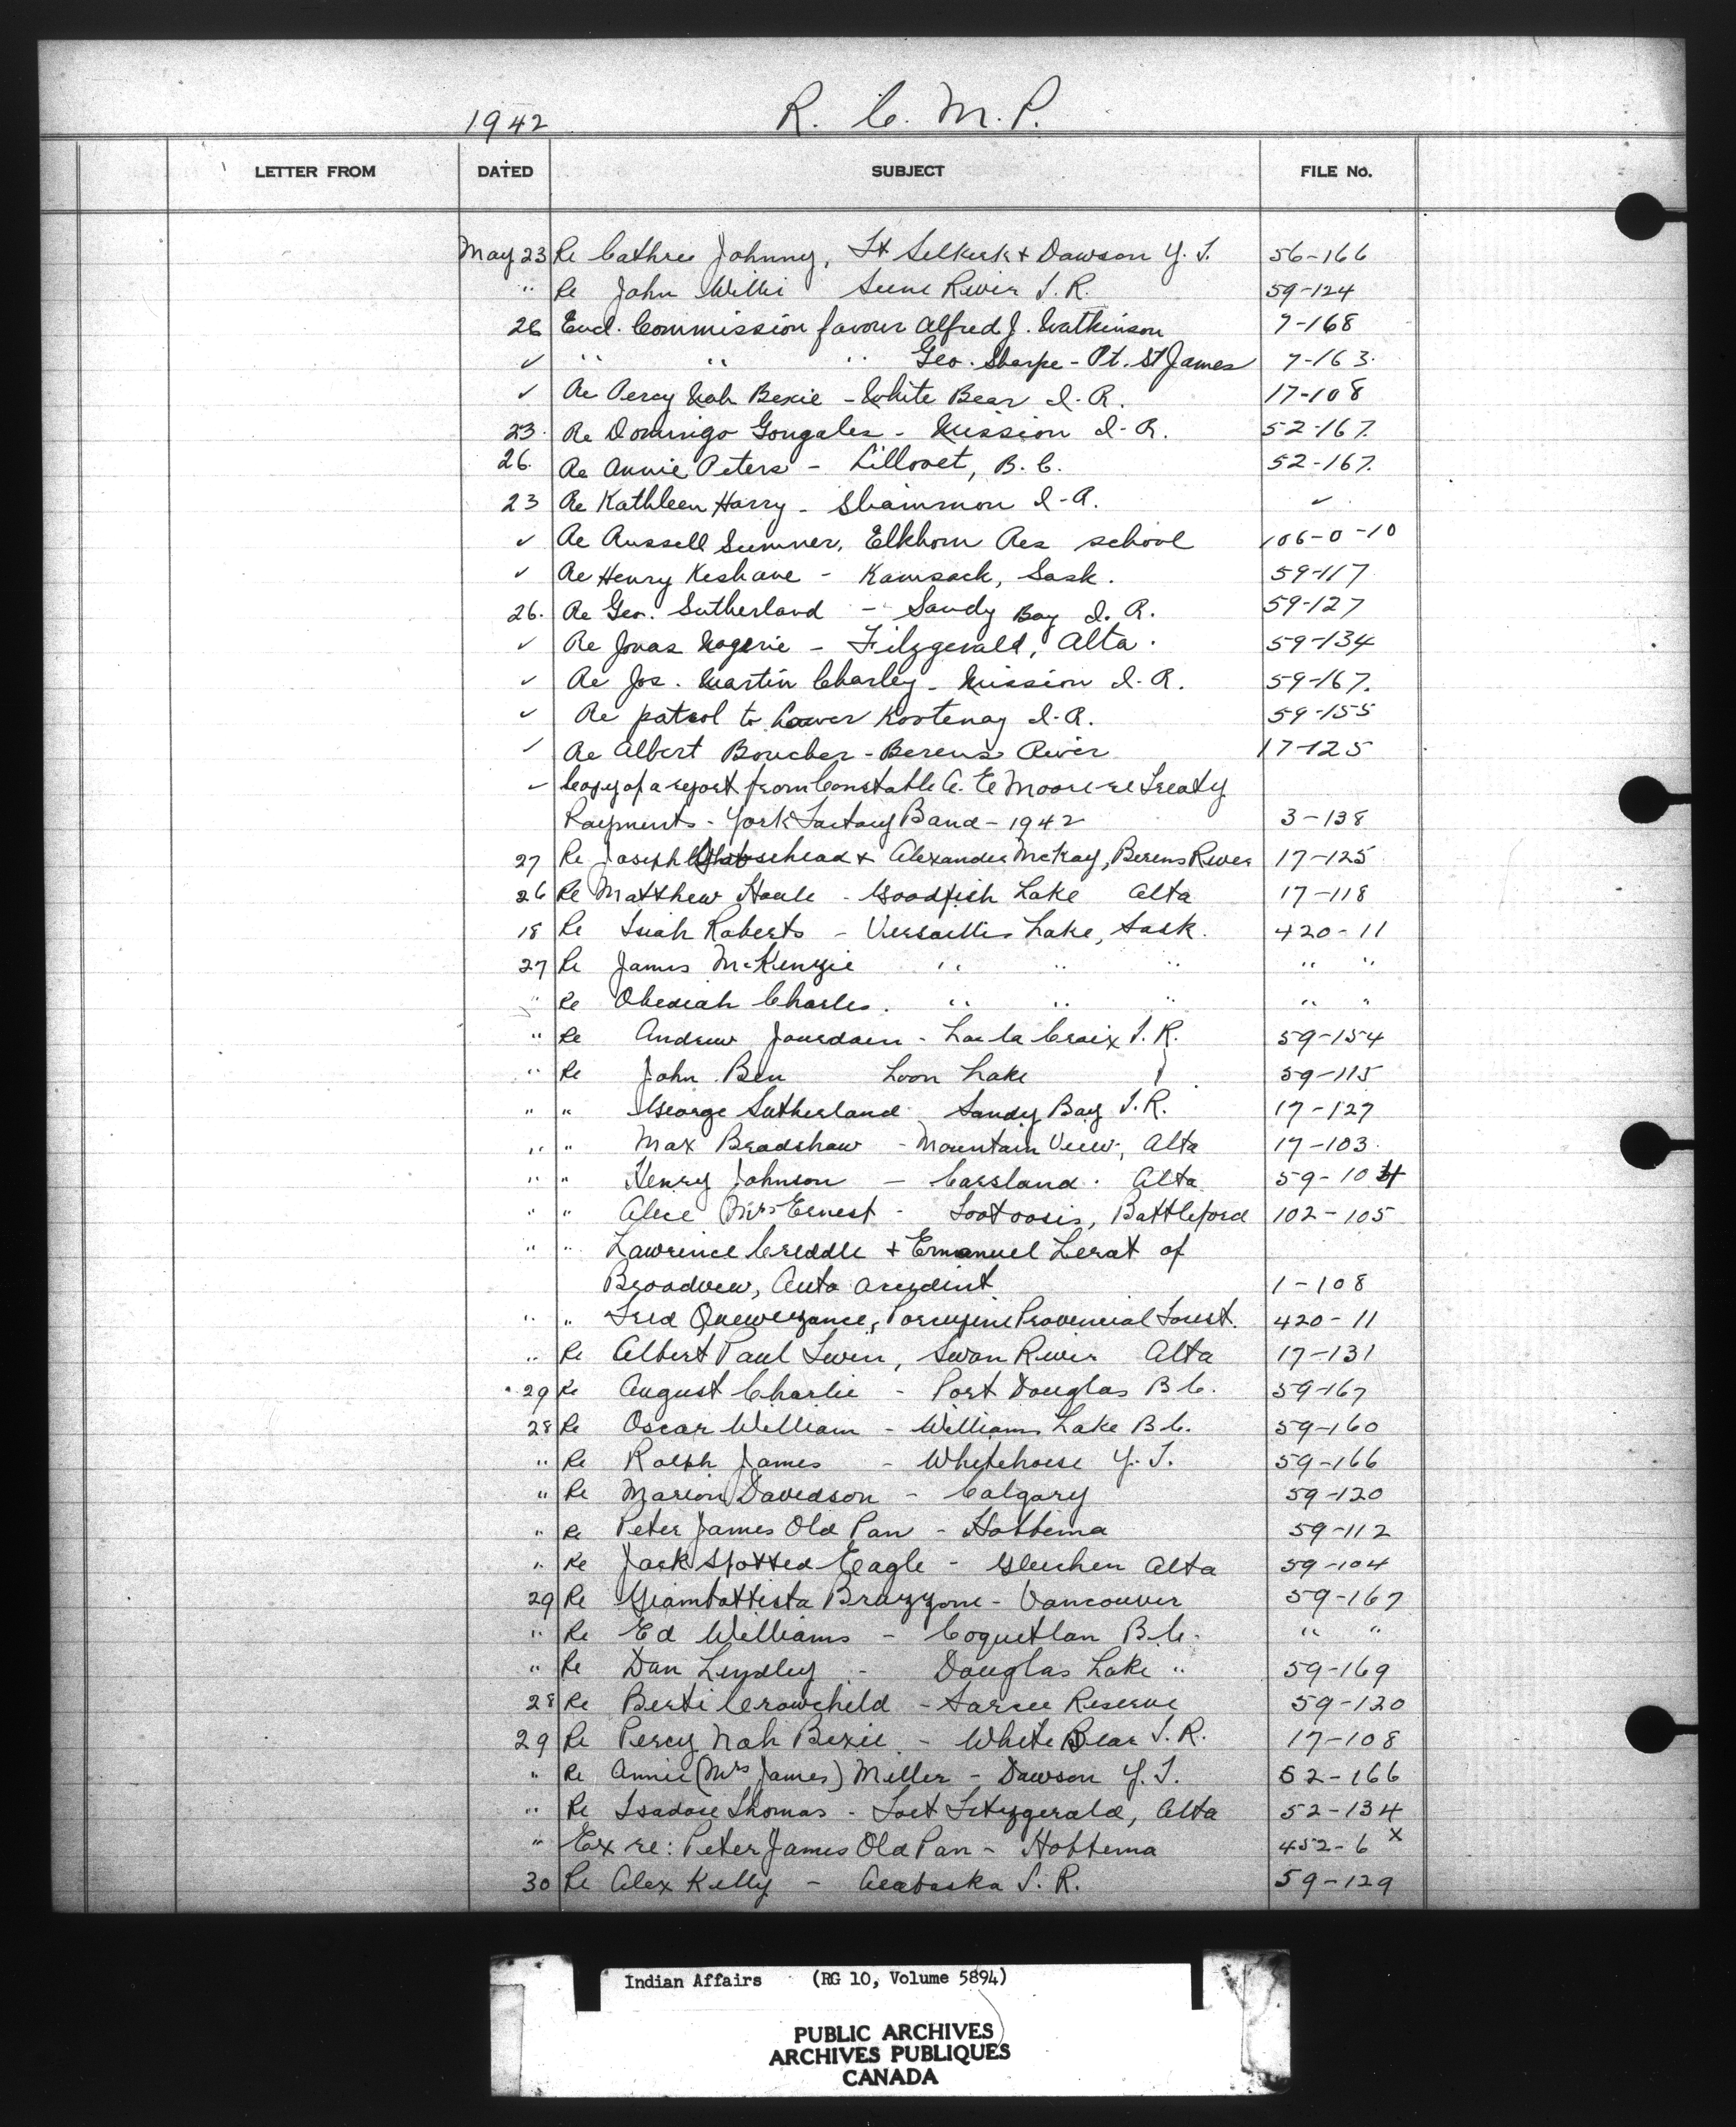 1942 R. C. M. P.
LETTER FROM DATED SUBJECT FILE No.
May 23 Re Cathree Johnny, Ft Selkirk + Dawson Y. T. 56-166
" Re John Willie Seine River I. R. 59-124
26 Encl. Commission favour Alfred J. Watkinson 7-168
✓ " " " Geo. Sharpe - Pt. St James 7-163.
✓ Re Percy Nah Bexie - White Bear I. R. 17-108
23. Re Domingo Gongales - Mission I. R. 52-167.
26. Re Annie Peters - Lillooet, B. C. 52-167.
23 Re Kathleen Harry - Shammon I. R. ✓
✓ Re Russell Sumner, Elkhorn Res school 106-0-10
✓ Re Henry Keshane - Kamsack, Sask. 59-117
26. Re Geo. Sutherland - Sandy Bay I. R. 59-127
✓ Re Jonas - Fitzgerald, Alta. 59-134
✓ Re Jos. Martin Charley - Mission I. R. 59-167.
✓ Re patrol to Lower Kootenay I. R. 59-155
✓ Re Albert Boucher - Berens River 17-125
✓ Copy of a report from Constable C. E Moore re Treaty
Payments - York Factory Band - 1942 3-138
27 Re Joseph + Alexander McKay, Berens River 17-125
26 Re Matthew Houle - Goodfish Lake Alta 17-118
18 Re Isiah Roberts - Versailles Lake, Sask. 420-11
27 Re James McKenzie " " " " "
" Re Obediah Charles. " " " " "
" Re Andrew Jourdain - Lac la Croix I. R. 59-154
" Re John Ben Loon Lake 59-115
" " George Sutherland Sandy Bay I. R. 17-127
" " Max Bradshaw - Mountain View, Alta 17-103.
" " Henry Johnson - Carsland. Alta 59-104
" " Alice Mrs Ernest - Tootoosis, Battleford 102-105
" " Lawrence Criddle + Emanuel Lerat of
Broadview, Auto accident 1-108
" " Fred Quewezance, Porcupine Provincial Forest. 420-11
" Re Albert Paul Twin, Swan River Alta 17-131
29 Re August Charlie - Port Douglas B. C. 59-167
28 Re Oscar William - Williams Lake B. C. 59-160
" Re Ralph James - Whitehorse Y. T. 59-166
" Re Marion Davidson - Calgary 59-120
" Re Peter James Old Pan - Hobbema 59-112
" Re Jack Spotted Eagle - Gleichen Alta 59-104
29 Re Giambattista Brazzoni - Vancouver 59-167
" Re Ed Williams - Coquetlan B. C. " "
" Re Dan Lindley - Douglas Lake " 59-169
28 Re Berti Crowcheld - Sarcee Reserve 59-120
29 Re Percy Nah Bexie - White Bear I. R. 17-108
" Re Annie (Mrs James) Miller - Dawson Y. T. 52-166
" Re Isadore Thomas - Fort Fitzgerald, Alta 52-134
" Ex re: Peter James Old Pan - Hobbema 452-6 x
30 Re Alex Kelly - I. R. 59-129
Indian Affairs (RG 10, Volume 5894)
PUBLIC ARCHIVES
ARCHIVES PUBLIQUES
CANADA